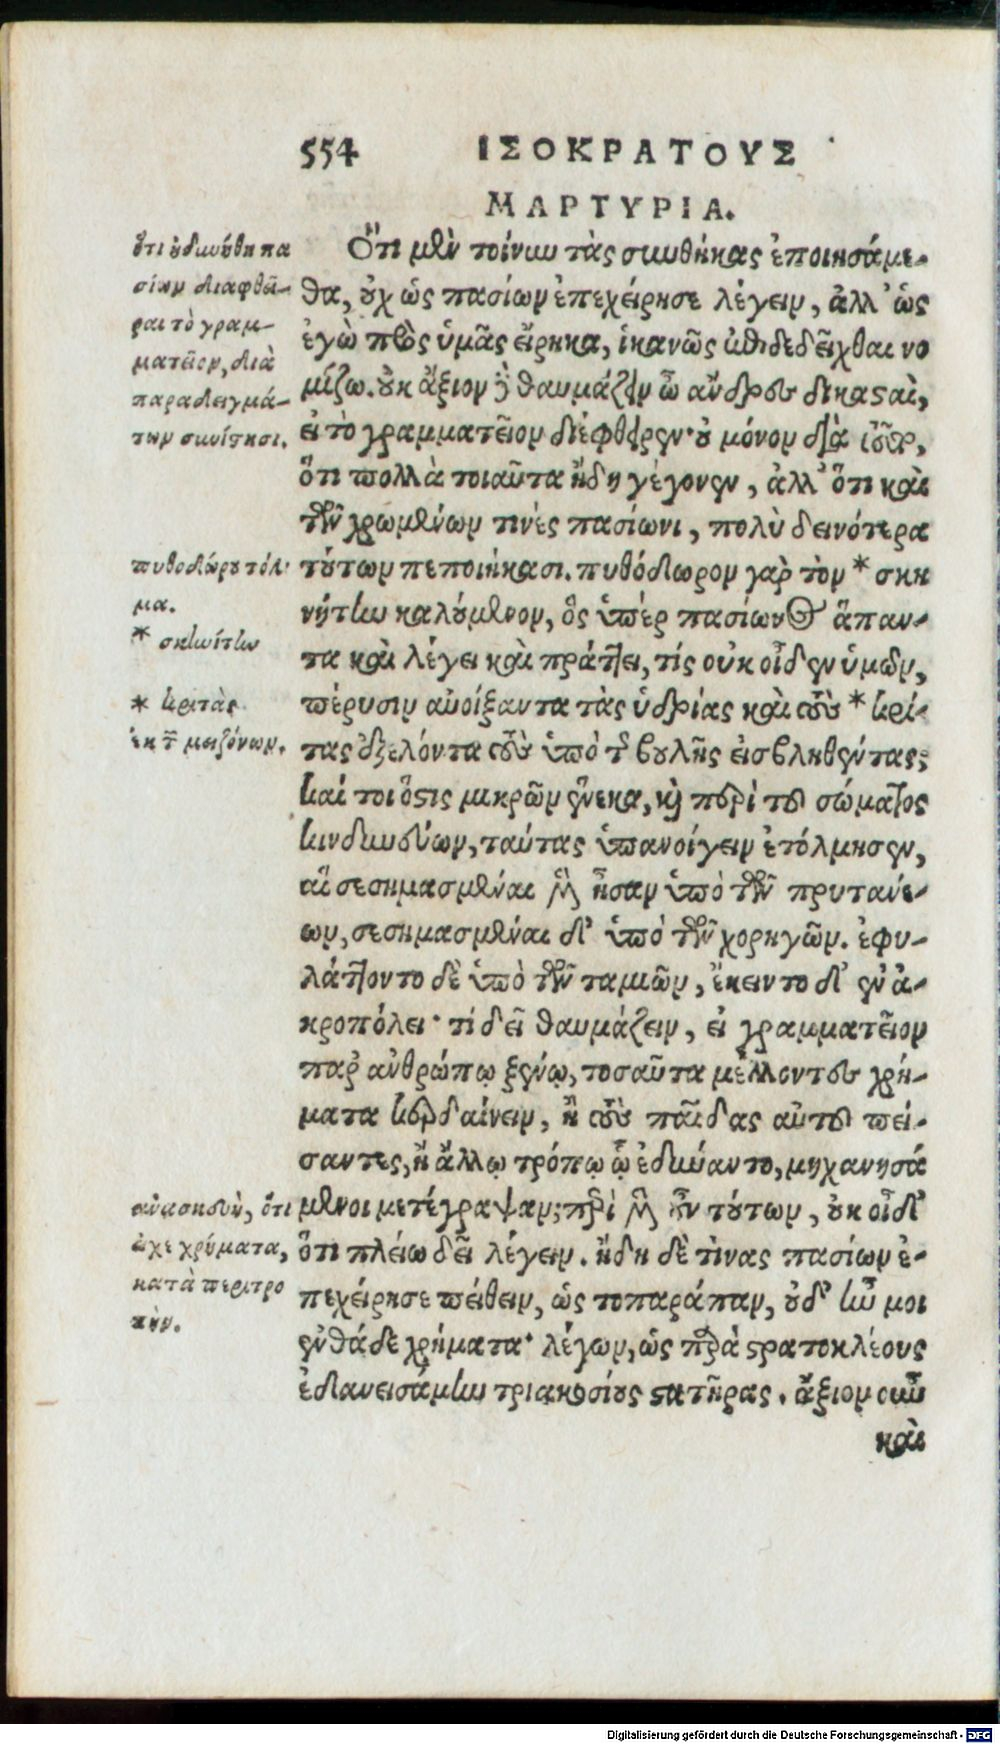 554 ΙΣΟΚΡΑΤΟΥΣ
ΜΑΡΤΥΡΙΑ.
Ὅτι μὲν τοίνυν τὰς συνθήκας ἐποιησάμε-
θα, οὐχ ὡς πασίων ἐπεχείρησε λέγειν, ἀλλ' ὡς
ἐγὼ πρὸς ὑμᾶς εἴρηκα, ἱκανῶς ἀποδεδεῖχθαι νο
μίζω. οὐκ ἄξιον δὲ θαυμάζειν ὦ ἄνδρες δικασαὶ,
εἰ τὸ γραμματεῖον διέφθειρεν· οὐ μόνον διὰ τοῦτο,
ὅτι πολλὰ τοιαῦτα ἤδη γέγονεν, ἀλλ' ὅτι καὶ
τῶν χρωμένων τινὲς πασίωνι, πολὺ δεινότερα
τούτων πεποιήκασι. πυθόδωρον γὰρ τὸν * σκη
νήτην καλούμενον, ὃς ὑπὲρ πασίωνος ἅπαν-
τα καὶ λέγει καὶ πράττει, τίς οὐκ οἶδεν ὑμῶν,
πέρυσιν ἀνοίξαντα τὰς ὑδρίας καὶ τοὺς * κρί-
τας ἐξελόντα τοὺς ὑπὸ τῆς βουλῆς εἰσβληθέντας;
καί τοι ὅστις μικρῶν ἕνεκα, καὶ περὶ τοῦ σώματος
κινδυνεύων, ταύτας ὑπανοίγειν ἐτόλμησεν,
αἳ σεσημασμέναι μὲν ἦσαν ὑπὸ τῶν πρυτανέ-
ων, σεσημασμέναι δ' ὑπὸ τῶν χορηγῶν. ἐφυ-
λάττοντο δὲ ὑπὸ τῶν ταμιῶν, ἔκειντο δ' ἐν ἀ-
κροπόλει· τί δεῖ θαυμάζειν, εἰ γραμματεῖον
παρ' ἀνθρώπῳ ξένῳ, τοσαῦτα μέλλοντες χρή-
ματα κερδαίνειν, ἢ τοὺς παῖδας αὐτοῦ πεί-
σαντες, ἢ ἄλλῳ τρόπῳ ᾧ ἐδύναντο, μηχανησά
μενοι μετέγραψαν; περὶ μὲν οὖν τούτων, οὐκ οἶδ'
ὅτι πλείω δεῖ λέγειν. ἤδη δὲ τίνας πασίων ἐ-
πεχείρησε πείθειν, ὡς τοπαράπαν, οὐδ' ἦν μοι
ἐνθάδε χρήματα· λέγων, ὡς παρὰ στρατοκλέους
ἐδανεισάμην τριακοσίους στατῆρας. ἄξιον οὖν
καὶ
ὅτι ἐδυνήθη πα
σίων διαφθεῖ-
ραι τὸ γραμ-
ματεῖον, διὰ
παραδειγμά-
των συνίστησι.
πυθοδώρου τόλ-
μα.
* σκωίτην
* κριτὰς
ἐκ τῶν μειζόνων.
ἀνασκευὴ, ὅτι
εἶχε χρήματα,
κατὰ περιτρο
πὴν.
Digitalisierung gefördert durch die Deutsche Forschungsgemeinschaft - DFG